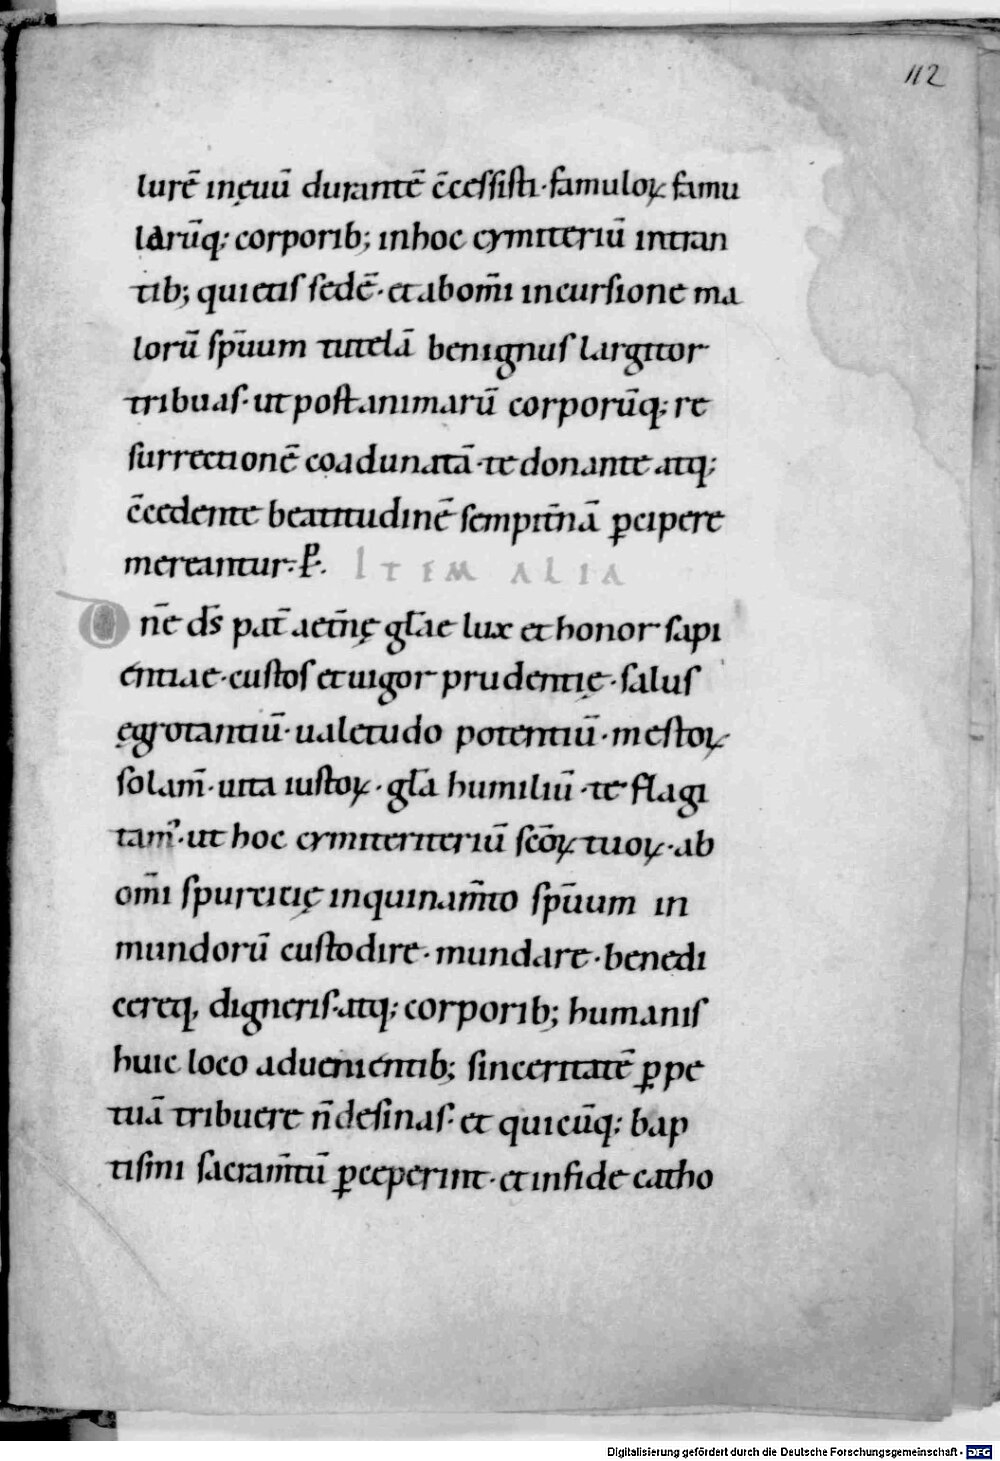 112
lurē inęuū durantē c̄cessisti · famuloꝝ famu
larūq; corporib; inhoc cymiteriū intran
tib; quietis sedē · et abom̄i incursione ma
lorū sp̄uum tutelā benignus largitor
tribuas · ut post animarū corporūq; re
surrectionē coadunatā · te donante atq;
c̄cedente beatitudinē sempit̄nā ꝑcipere
mereantur · ꝑ ·
ITEM ALIA
Om̄e ds̄ pat̄ aet̄nę gl̄ae lux et honor sapi
entiae · custos et uigor prudentię · salus
ęgrotantiū · ualetudo potentiū · mestoꝝ
solam̄ · uita iustoꝝ · gl̄a humiliū · te flagi
tam᷒ · ut hoc cymiteriteriū sc̄oꝝ tuoꝝ · ab
om̄i spurcitię inquinam̄to sp̄uum in
mundorū custodire · mundare · benedi
cereq, digneris · atq; corporib; humanis
huic loco aduenientib; sinceritatē ꝑpe
tuā tribuere n̄ desinas · et quicūq; bap
tismi sacram̄tū ꝑceperint · et infide catho
Digitalisierung gefördert durch die Deutsche Forschungsgemeinschaft - DFG